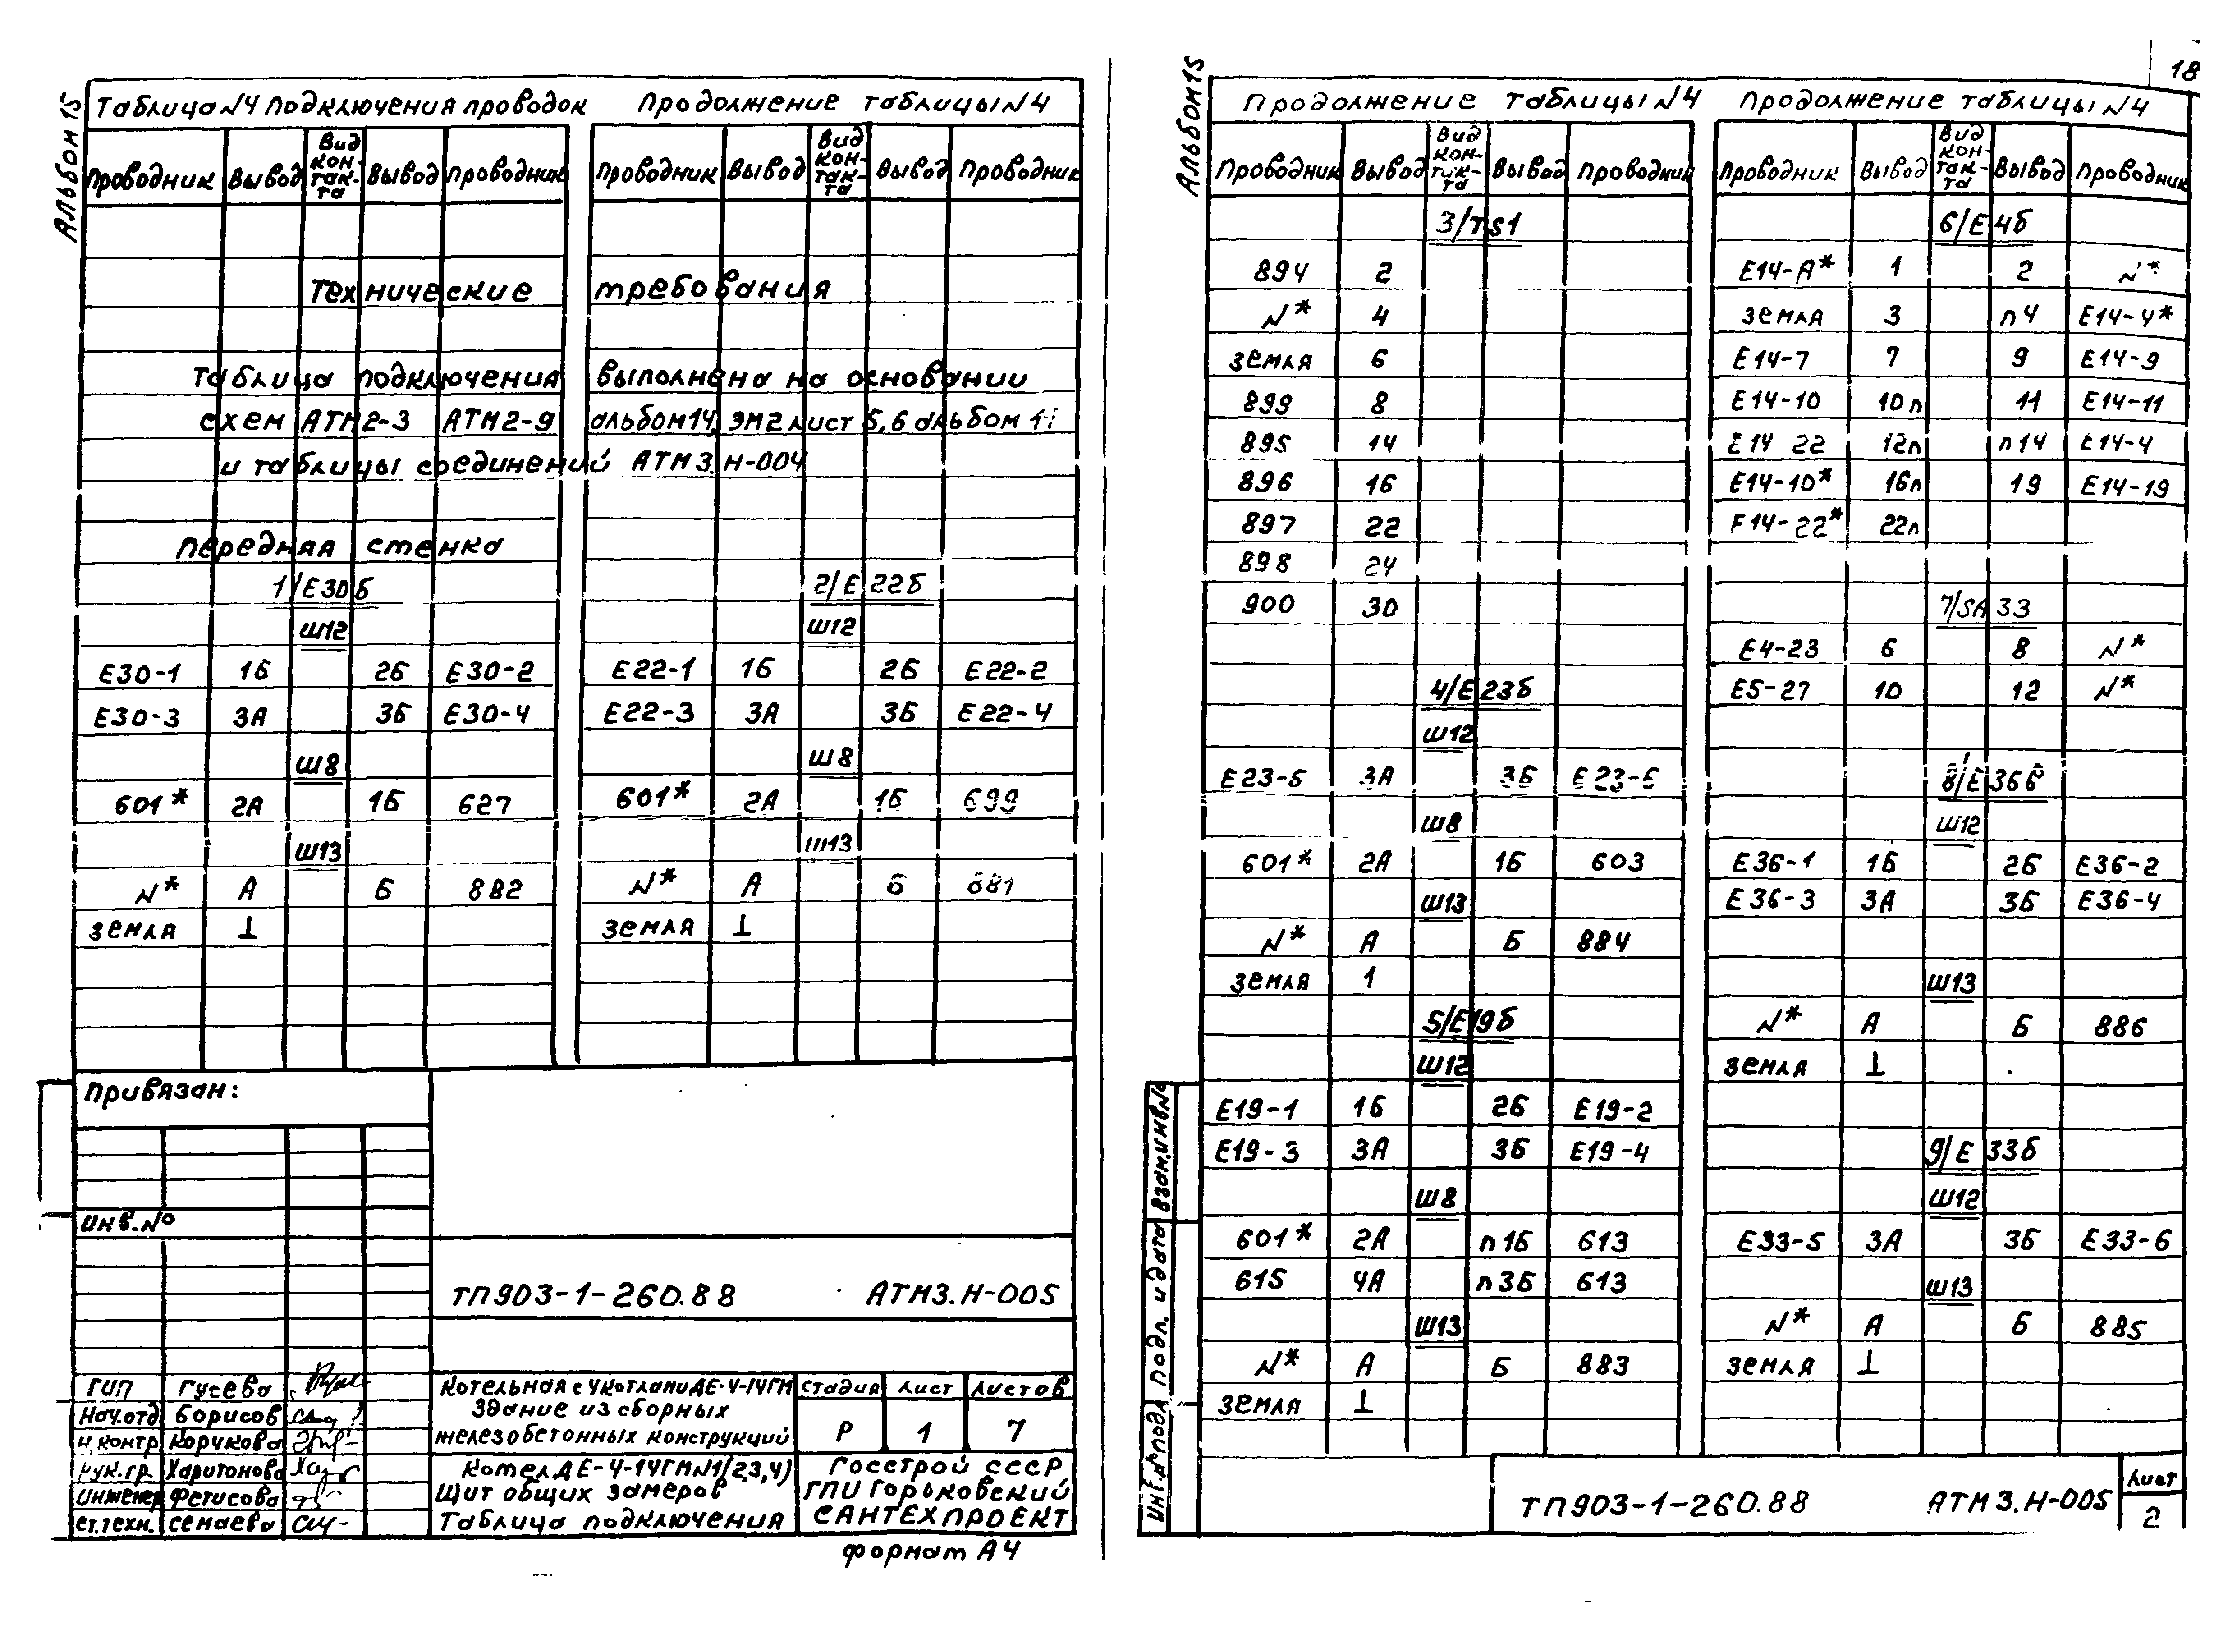 18
Альбом 15
Таблица №4 подключения проводок
Продолжение таблицы №4
Проводник Вывод Вид контакта Вывод Проводник
Проводник Вывод Вид контакта Вывод Проводник
Технические требования
Таблица подключения выполнена на основании
схем АТМ2-3 АТМ2-9 альбом 14, ЭМ2 лист 5,6 альбом
и таблицы соединений АТМ3.Н-004
Передняя стенка
1/Е30б
Ш12
Е30-1 1Б 2Б Е30-2
Е30-3 3А 3Б Е30-4
Ш8
601* 2А 1Б 627
Ш13
N* А Б 882
земля ⊥
2/Е22б
Ш12
Е22-1 1Б 2Б Е22-2
Е22-3 3А 3Б Е22-4
Ш8
601* 2А 1Б 699
Ш13
N* А Б 881
земля ⊥
Привязан:
Инв.№
ТП903-1-260.88 АТМ3.Н-005
ГИП Гусева
Нач.отд. Борисов
Н.контр. Корчкова
Рук.гр. Харитонова
Инженер Фетисова
Ст.техн. Семаева
Котельная с 4 котлами ДЕ-4-14ГМ
Здание из сборных
железобетонных конструкций
Стадия Лист Листов
Р 1 7
Котел ДЕ-4-14ГМ №1(2,3,4)
Щит общих замеров
Таблица подключения
Госстрой СССР
ГПИ Горьковский
САНТЕХПРОЕКТ
формат А4
Альбом 15
Продолжение таблицы №4
Продолжение таблицы №4
Проводник Вывод Вид контакта Вывод Проводник
Проводник Вывод Вид контакта Вывод Проводник
3/TS1
894 2
N* 4
земля 6
899 8
895 14
896 16
897 22
898 24
900 30
4/Е23б
Ш12
Е23-5 3А 3Б Е23-6
Ш8
601* 2А 1Б 603
Ш13
N* А Б 884
земля 1
5/Е19б
Ш12
Е19-1 1Б 2Б Е19-2
Е19-3 3А 3Б Е19-4
Ш8
601* 2А п1Б 613
615 4А п3Б 613
Ш13
N* А Б 883
земля ⊥
6/Е4б
Е14-А* 1 2 N*
земля 3 п4 Е14-4*
Е14-7 7 9 Е14-9
Е14-10 10п 11 Е14-11
Е14 22 12п п14 Е14-4
Е14-10* 16п 19 Е14-19
Е14-22* 22п
7/SA33
Е4-23 6 8 N*
Е5-27 10 12 N*
8/Е36б
Ш12
Е36-1 1Б 2Б Е36-2
Е36-3 3А 3Б Е36-4
Ш13
N* А Б 886
земля ⊥
9/Е33б
Ш12
Е33-5 3А 3Б Е33-6
Ш13
N* А Б 885
земля ⊥
Взам.инв.№
Подп. и дата
Инв.№ подл.
ТП903-1-260.88 АТМ3.Н-005
Лист
2